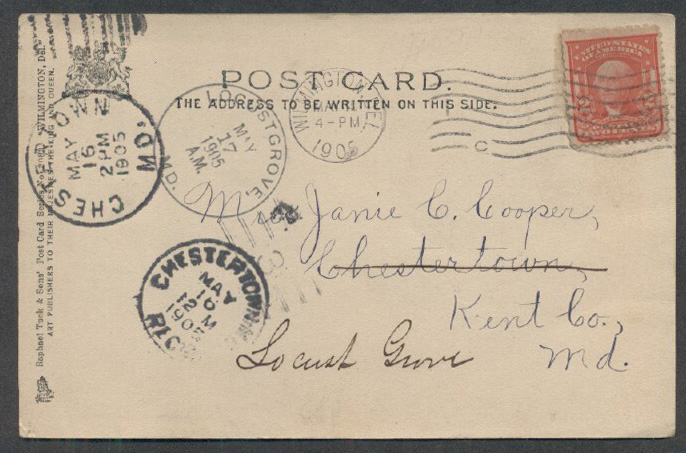 POST CARD.
THE ADDRESS TO BE WRITTEN ON THIS SIDE.
UNITED STATES
OF AMERICA
WILMINGTON, DEL.
4-PM
1905
C
LOCUSTGROVE,
MAY
17
1905
A.M.
MD.
CHESTERTOWN
MAY
16
2 PM
1905
MD.
CHESTERTOWN
MAY
1905
REC'D
Miss Janie C. Cooper,
Chestertown,
Kent Co.,
Locust Grove Md.
Raphael Tuck & Sons' Post Card Series WILMINGTON, Del.
ART PUBLISHERS TO THEIR MAJESTIES THE KING AND QUEEN.